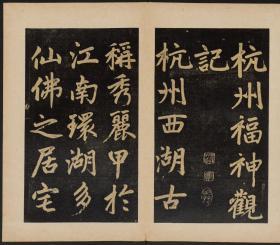 杭州福神觀
記
杭州西湖古
稱秀麗甲於
江南環湖多
仙佛之居宅